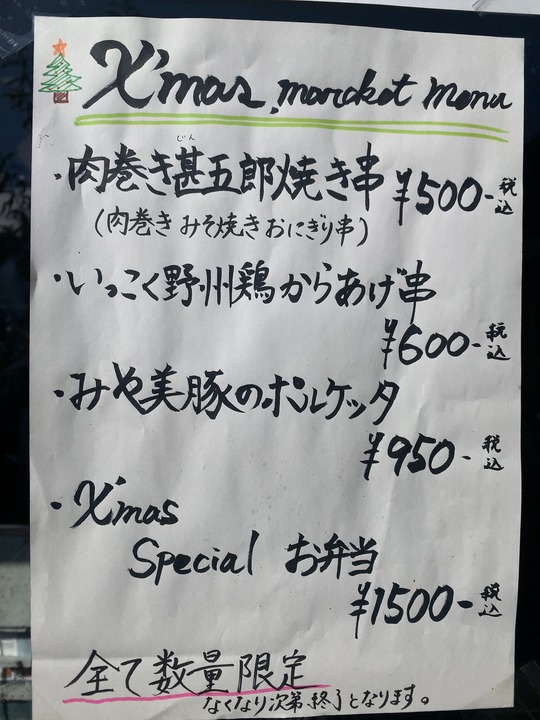 X'mas marcket menu
・肉巻き甚五郎焼き串 ¥500-税込
じん
(肉巻きみそ焼きおにぎり串)
・いっこく野州鶏からあげ串
¥600-税込
・みや美豚のポルケッタ
¥950-税込
・X'mas
Special お弁当
¥1500-税込
全て数量限定
なくなり次第、終了となります。